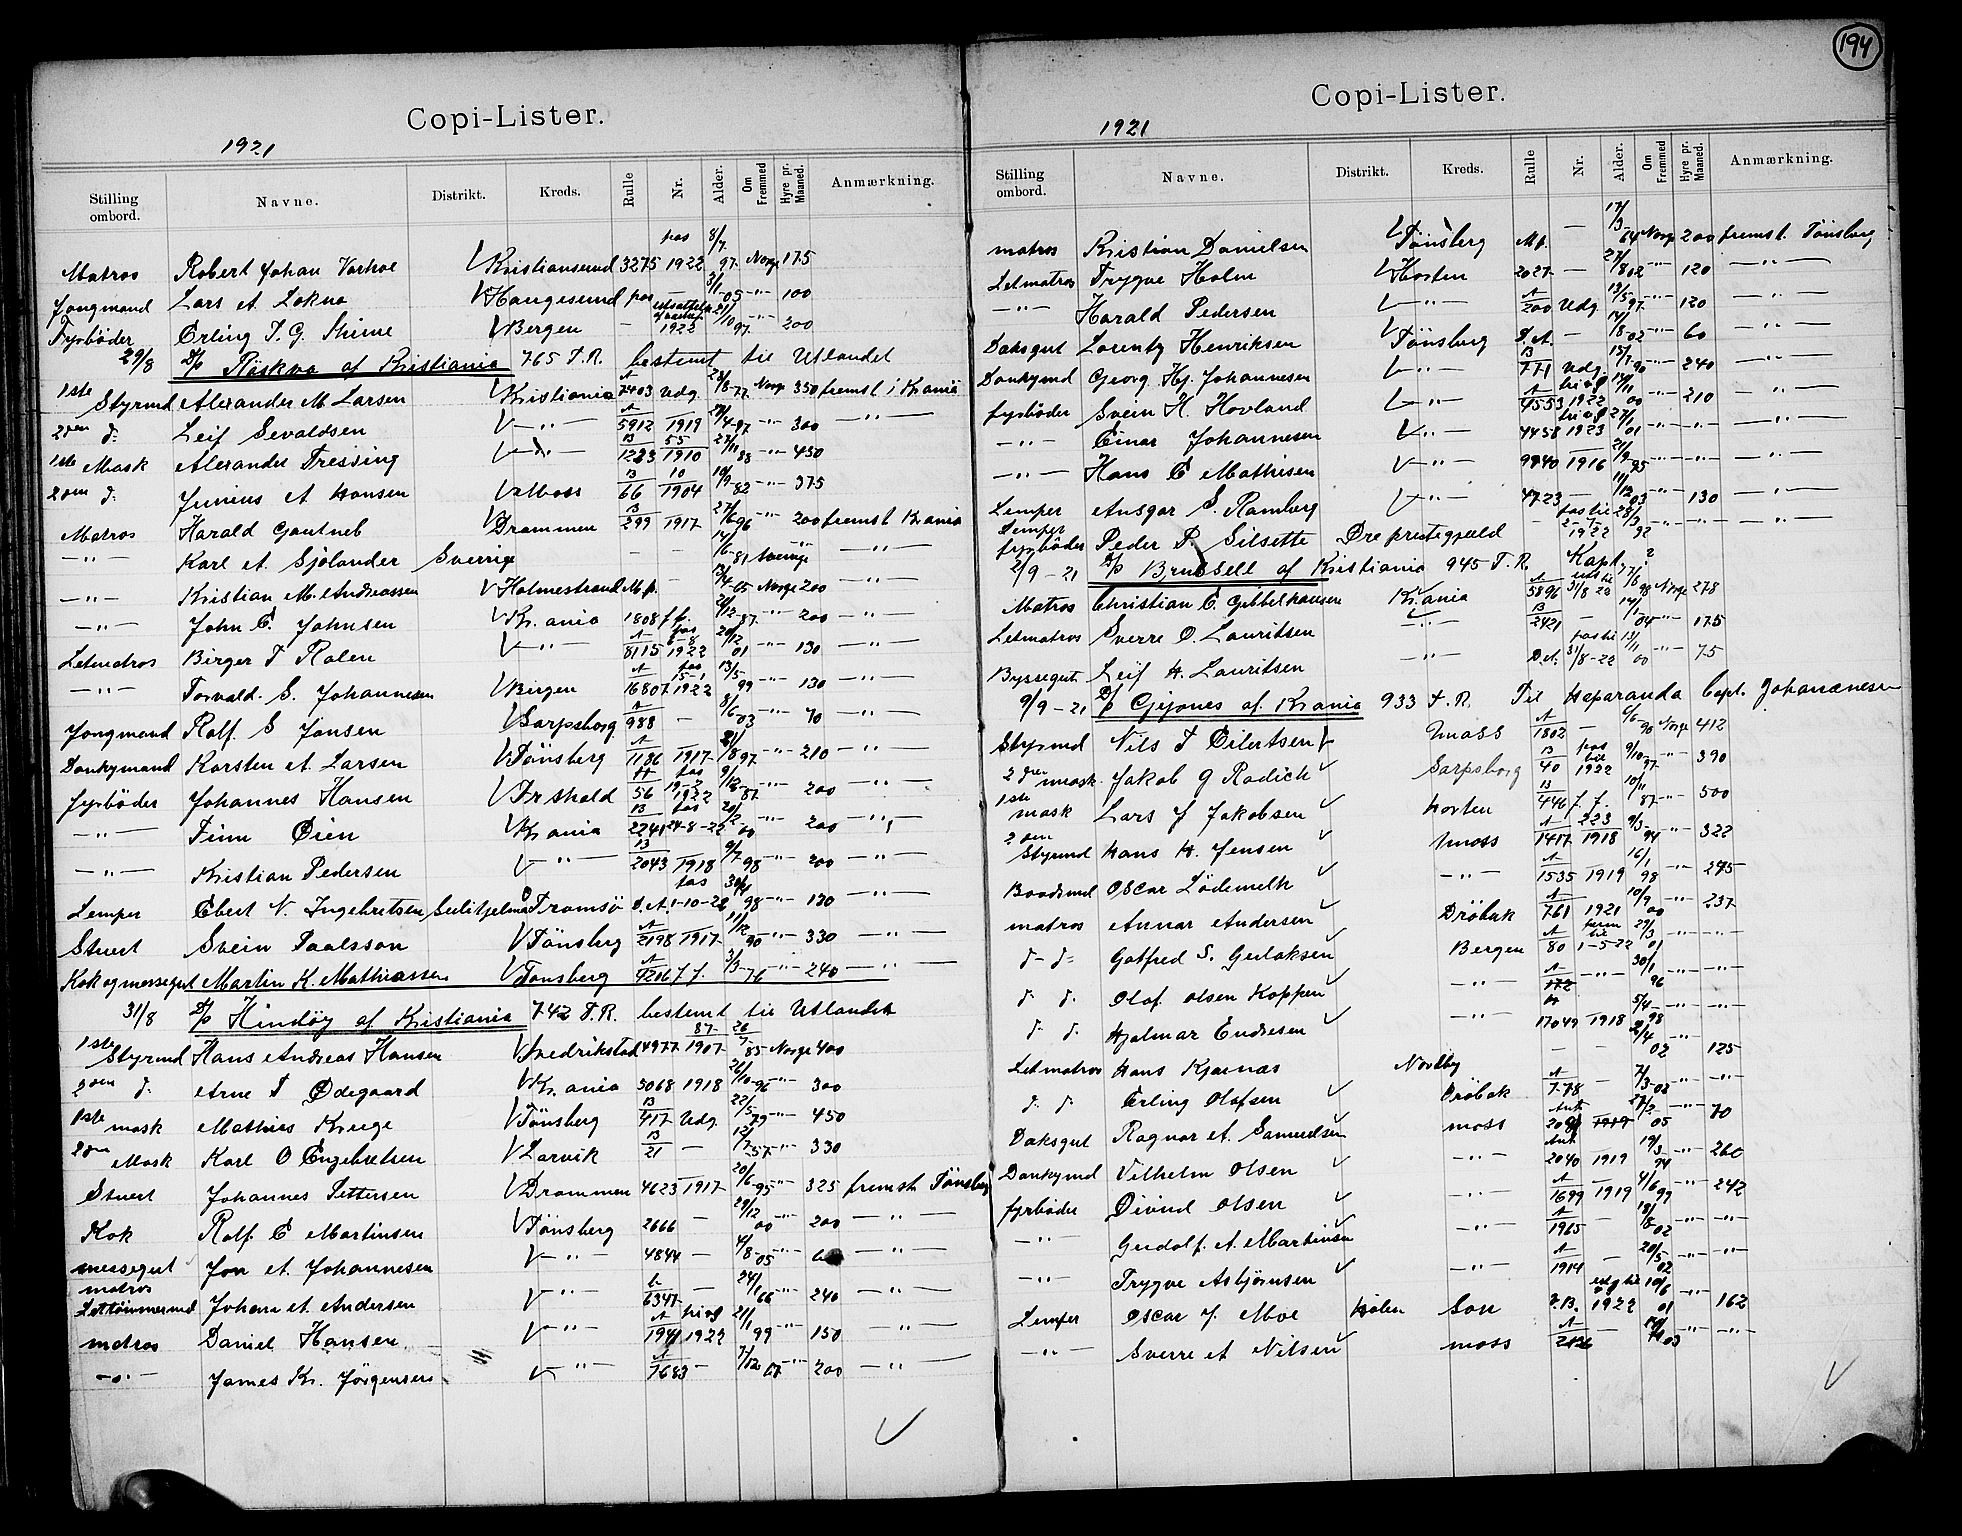 194
Copi-Lister.
1921
Stilling ombord. Navne. Distrikt. Kreds. Rulle Nr. Alder. Om Fremmed Hyre pr. Maaned. Anmærkning.
Matros Robert Johan V Kristiansund 3275 pas 1922 8/7 97 Norge 175
Jongmand Lars A. Løkna V Haugesund pas 3/1-05 -"- 100
Fyrbøder Erling T. G. V Bergen - 1922 21/10 97 -"- 200
29/8 D/S Røskva af Kristiania 765 T.R. bestemt til Utlandet
1ste Styrmd Alexander M Larsen V Kristiania A 7403 Udg. 28/8-77 Norge 350 fremst i Krania
2den d. Leif Sevaldsen V -"- A 5912 1919 29/4-97 -"- 300 -"-
1ste Mask Alexander Tressing V -"- B 1223 55 1910 27/11 88 -"- 450
2den d. Junius A Hansen V Moss B 66 10 1904 10/9 82 -"- 375
Matros Harald Gautneb V Drammen B 299 1917 27/6 96 -"- 200 fremst Krania
-"- Karl A. Sjölander Sverrige - - 14/6-81 Sverige -"- -"-
-"- Kristian M. Andreassen V Holmestrand M.p. - 13/4-05 Norge 200 -"-
-"- John E. Johnsen V Kr.ania 1808 ff. 21/12-87 -"- 200 -"-
Letmatros Birger T Rolen V -"- A 8115 pas 6-8 1922 20/12 01 -"- 130 -"-
-"- Torvald S. Johannesen V Bergen A 16807 pas 15-1 1922 13/5 99 -"- 130 -"-
Jongmand Rolf S Jonsen V Sarpsborg A 988 - 8/6 03 -"- 70 -"-
Donkymand Karsten A. Larsen V Tönsberg A 1186 1917 21/8 97 -"- 210 -"-
fyrbøder Johannes Hansen V Frshald A 56 pas 19-2 1922 9/12 87 -"- 200 -"-
-"- Finn Øien V Krania B 2241 pas 24-8-22 20/12-00 -"- 200 -"-
-"- Kristian Pedersen V -"- B 2043 1918 9/7 98 -"- 200 -"-
Lemper Ebert N. Ingebretsen Sulitjelma Tromsö D.A. pas 1-10-22 98 -"- 130 -"-
Stuert Svein Paalsson V Tönsberg A 2198 1917 11/12 90 -"- 330 -"-
Kok og messegut Martin K. Mathiassen V Tonsberg A 4216 f.f. 3/3-76 -"- 240 -"-
31/8 D/S Hindöy af Kristiania 742 T.R. bestemt til Utlandet
1ste Styrmd Hans Andreas Hansen V Fredrikstad 4977 87 1907 26/7-85 Norge 400
2den d. Arne T Ødegaard V Kr.ania 5068 1918 26/10-96 -"- 300
1ste mask Mathias Krege V Tönsberg B 417 Udg. 22/5-79 -"- 450
2den Mask Karl O Engebretsen V Larvik B 21 - 12/7-57 -"- 330
Stuert Johannes Pettersen V Drammen 4623 1917 20/6-95 -"- 325 fremst. Tönsberg
Kok Rolf E Martinsen V Tönsberg 2666 - 29/12 00 -"- 200 -"-
messegut Jon A. Johannesen V -"- 4844 - 4/8-05 -"- -"-
matros Lettömmermd Johan A. Andersen V -"- 6347 - 24/1 66 -"- 240 -"-
matros Daniel Hansen V -"- A 1941 1922 21/1 99 -"- 150 -"-
-"- James Kr. Jørgensen V -"- A 7683 - 7/12 -"- 200 -"-
Copi-Lister.
1921
Stilling ombord. Navne. Distrikt. Kreds. Rulle Nr. Alder. Om Fremmed Hyre pr. Maaned. Anmærkning.
matros Kristian Danielsen V Tönsberg M.p. - 17/3-64 Norge 200 fremst. Tönsberg
Letmatros Trygve Holm V Horten 2027 - 27/8 02 -"- 120 -"-
-"- Harald Pedersen V -"- A 200 Udg. 13/5 97 -"- 120 -"-
Daksgut Lorentz Henriksen V Tönsberg D.A. - 14/8-02 -"- 60 -"-
Donkymd Georg Hj. Johannesen V -"- B 771 Udg. 15/7-90 -"- 240 -"-
fyrbøder Svein H. Hovland V -"- A 4553 1922 14/11 00 -"- 210 -"-
-"- Einar Johannesen V -"- 4458 1923 27/1 01 -"- -"- -"-
-"- Hans E Mathisen V -"- 9940 1916 21/9-95 -"- -"- -"-
Lemper Ansgar S. Ramberg V -"- 4723 - 11/12 03 -"- 130 -"-
Lemper fyrbøder Peder P. Silsette Øre prestegjeld - pas til 2-7- 1922 28/3 92 -"- -"- -"-
2/9-21 D/S Brussell af Kristiania 945 T.R. Kapt. ?
Matros Christian E. Gebbelhausen Kr.ania A 5896 31/8 22 27/6 98 Norge 278
Letmatros Sverre O. Lauritsen -"- B 2421 - 14/1 04 -"- 175
Byssegut Leif H. Lauritsen -"- D.A. pas til 31/8-22 13/11 00 -"- 75
9/9-21 D/S Gijones af Krania 933 T.R. Til Haparanda Capt. Johannesen
Styrmd Nils T Eilertsen Moss A 1802 - 6/6-90 Norge 412
2den mask. Jakob G Radich Sarpsborg B 40 pas til 1922 9/10-97 -"- 390
1ste mask Lars J Jakobsen Horten B 446 f.f. 10/11 87 -"- 500
2den Styrmd Hans H. Jensen Moss A 1417 223 1918 9/3-94 -"- 322
Baadsmd Oscar Lödemelk -"- A 1535 1919 16/1 98 -"- 275
matros Annar Andersen Dröbak A 761 1921 10/9 00 -"- 237
d- d- Gotfred S. Gerlaksen Bergen A 80 1-5-22 29/3 01 -"- -"-
d. d. Olaf Olsen Koppen -"- A 172 -"- 30/1 96 -"- -"-
d d. Hjalmar Endresen -"- 17049 1918 5/4-98 -"- -"-
Letmatros Hans Kjærnæs Nordby - - 2/4 02 -"- 125
d. d. Erling Olafsen Dröbak A 778 - 7/3-02 -"- -"-
Daksgut Ragnar A. Samuelsen moss Ant 1919 27/2 05 -"- 70
Donkymd Vilhelm Olsen -"- Ant 2040 1919 19/3 94 -"- 260
fyrbøder Øivind Olsen -"- A 1699 1919 4/6 99 -"- 242
-"- Gudolf A. Martinsen -"- A 1965 - 18/8-02 -"- -"-
-"- Trygve Asbjörnsen -"- A 1914 - 20/5 02 -"- -"-
Lemper Oscar J. Moe Hölen Son F.B. 1922 10/6 01 -"- 162
-"- Sverre A Nilsen moss A - 03 -"- -"-